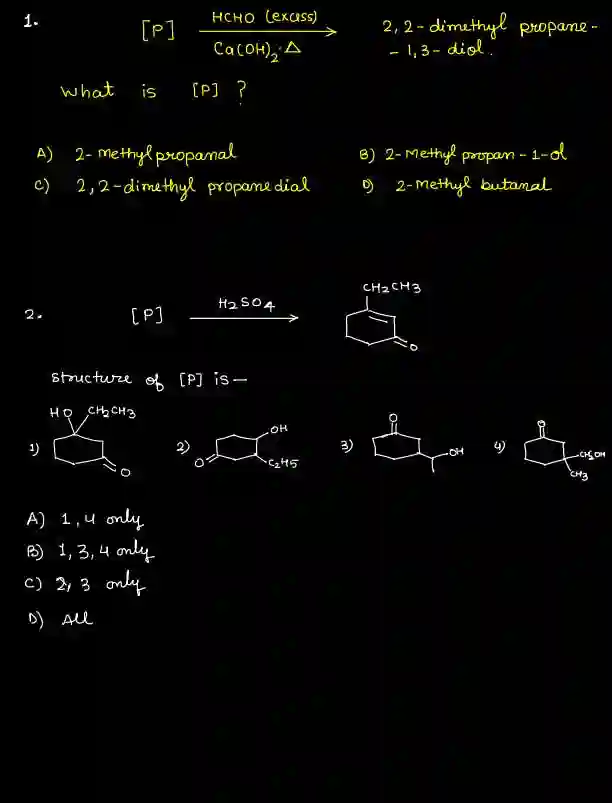 1.
[P] HCHO (excess) 2,2-dimethyl propane-
Ca(OH)2 Δ - 1,3- diol.
what is [P] ?
A) 2- methylpropanal B) 2-Methyl propan-1-ol
C) 2,2-dimethyl propanedial D) 2-Methyl butanal
CH2CH3
2. [P] H2SO4
O
structure of [P] is—
HO CH2CH3 OH O O
1) 2) 3) OH 4) CH2OH
O O C2H5 CH3
A) 1,4 only
B) 1,3,4 only
C) 2,3 only
D) All